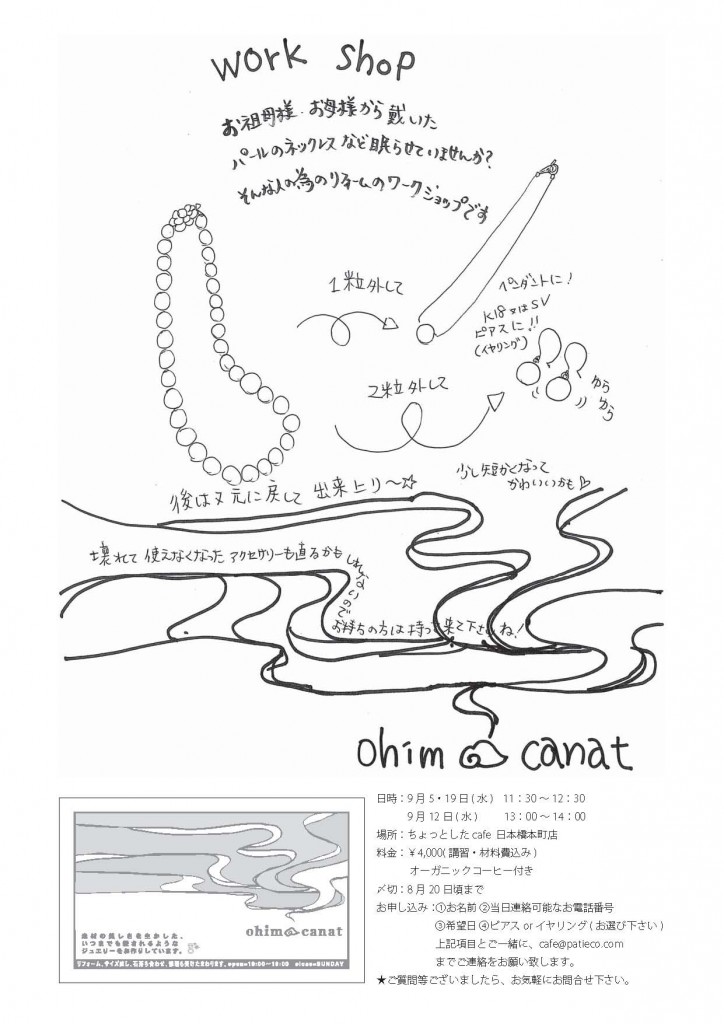 work shop
お祖母様、お母様から戴いた
パールのネックレスなど眠らせていませんか?
そんな人の為のリフォームのワークショップです
1粒外して
ペンダントに!
K18又はSV
ピアスに!!
(イヤリング)
2粒外して
ゆら
ゆら
後は又元に戻して 出来上り〜☆
少し短かくなって
かわいいかも♡
壊れて使えなくなったアクセサリーも直るかもしれないので
お持ちの方は持って来て下さいね!
ohim canat
日時:9月5・19日(水) 11:30〜12:30
9月12日(水) 13:00〜14:00
場所:ちょっとしたcafe 日本橋本町店
料金:¥4,000(講習・材料費込み)
オーガニックコーヒー付き
〆切:8月20日頃まで
お申し込み:①お名前②当日連絡可能なお電話番号
③希望日④ピアスorイヤリング(お選び下さい)
上記項目とご一緒に、cafe@patieco.com
までご連絡をお願い致します。
★ご質問等ございましたら、お気軽にお問合せ下さい。
素材の美しさを生かした、
いつまでも愛されるような
ジュエリーをお作りしています。
ohim canat
リフォーム、サイズ直し、石留め合わせ、修理も受けたまわります。open=10:00〜18:00 close=SUNDAY